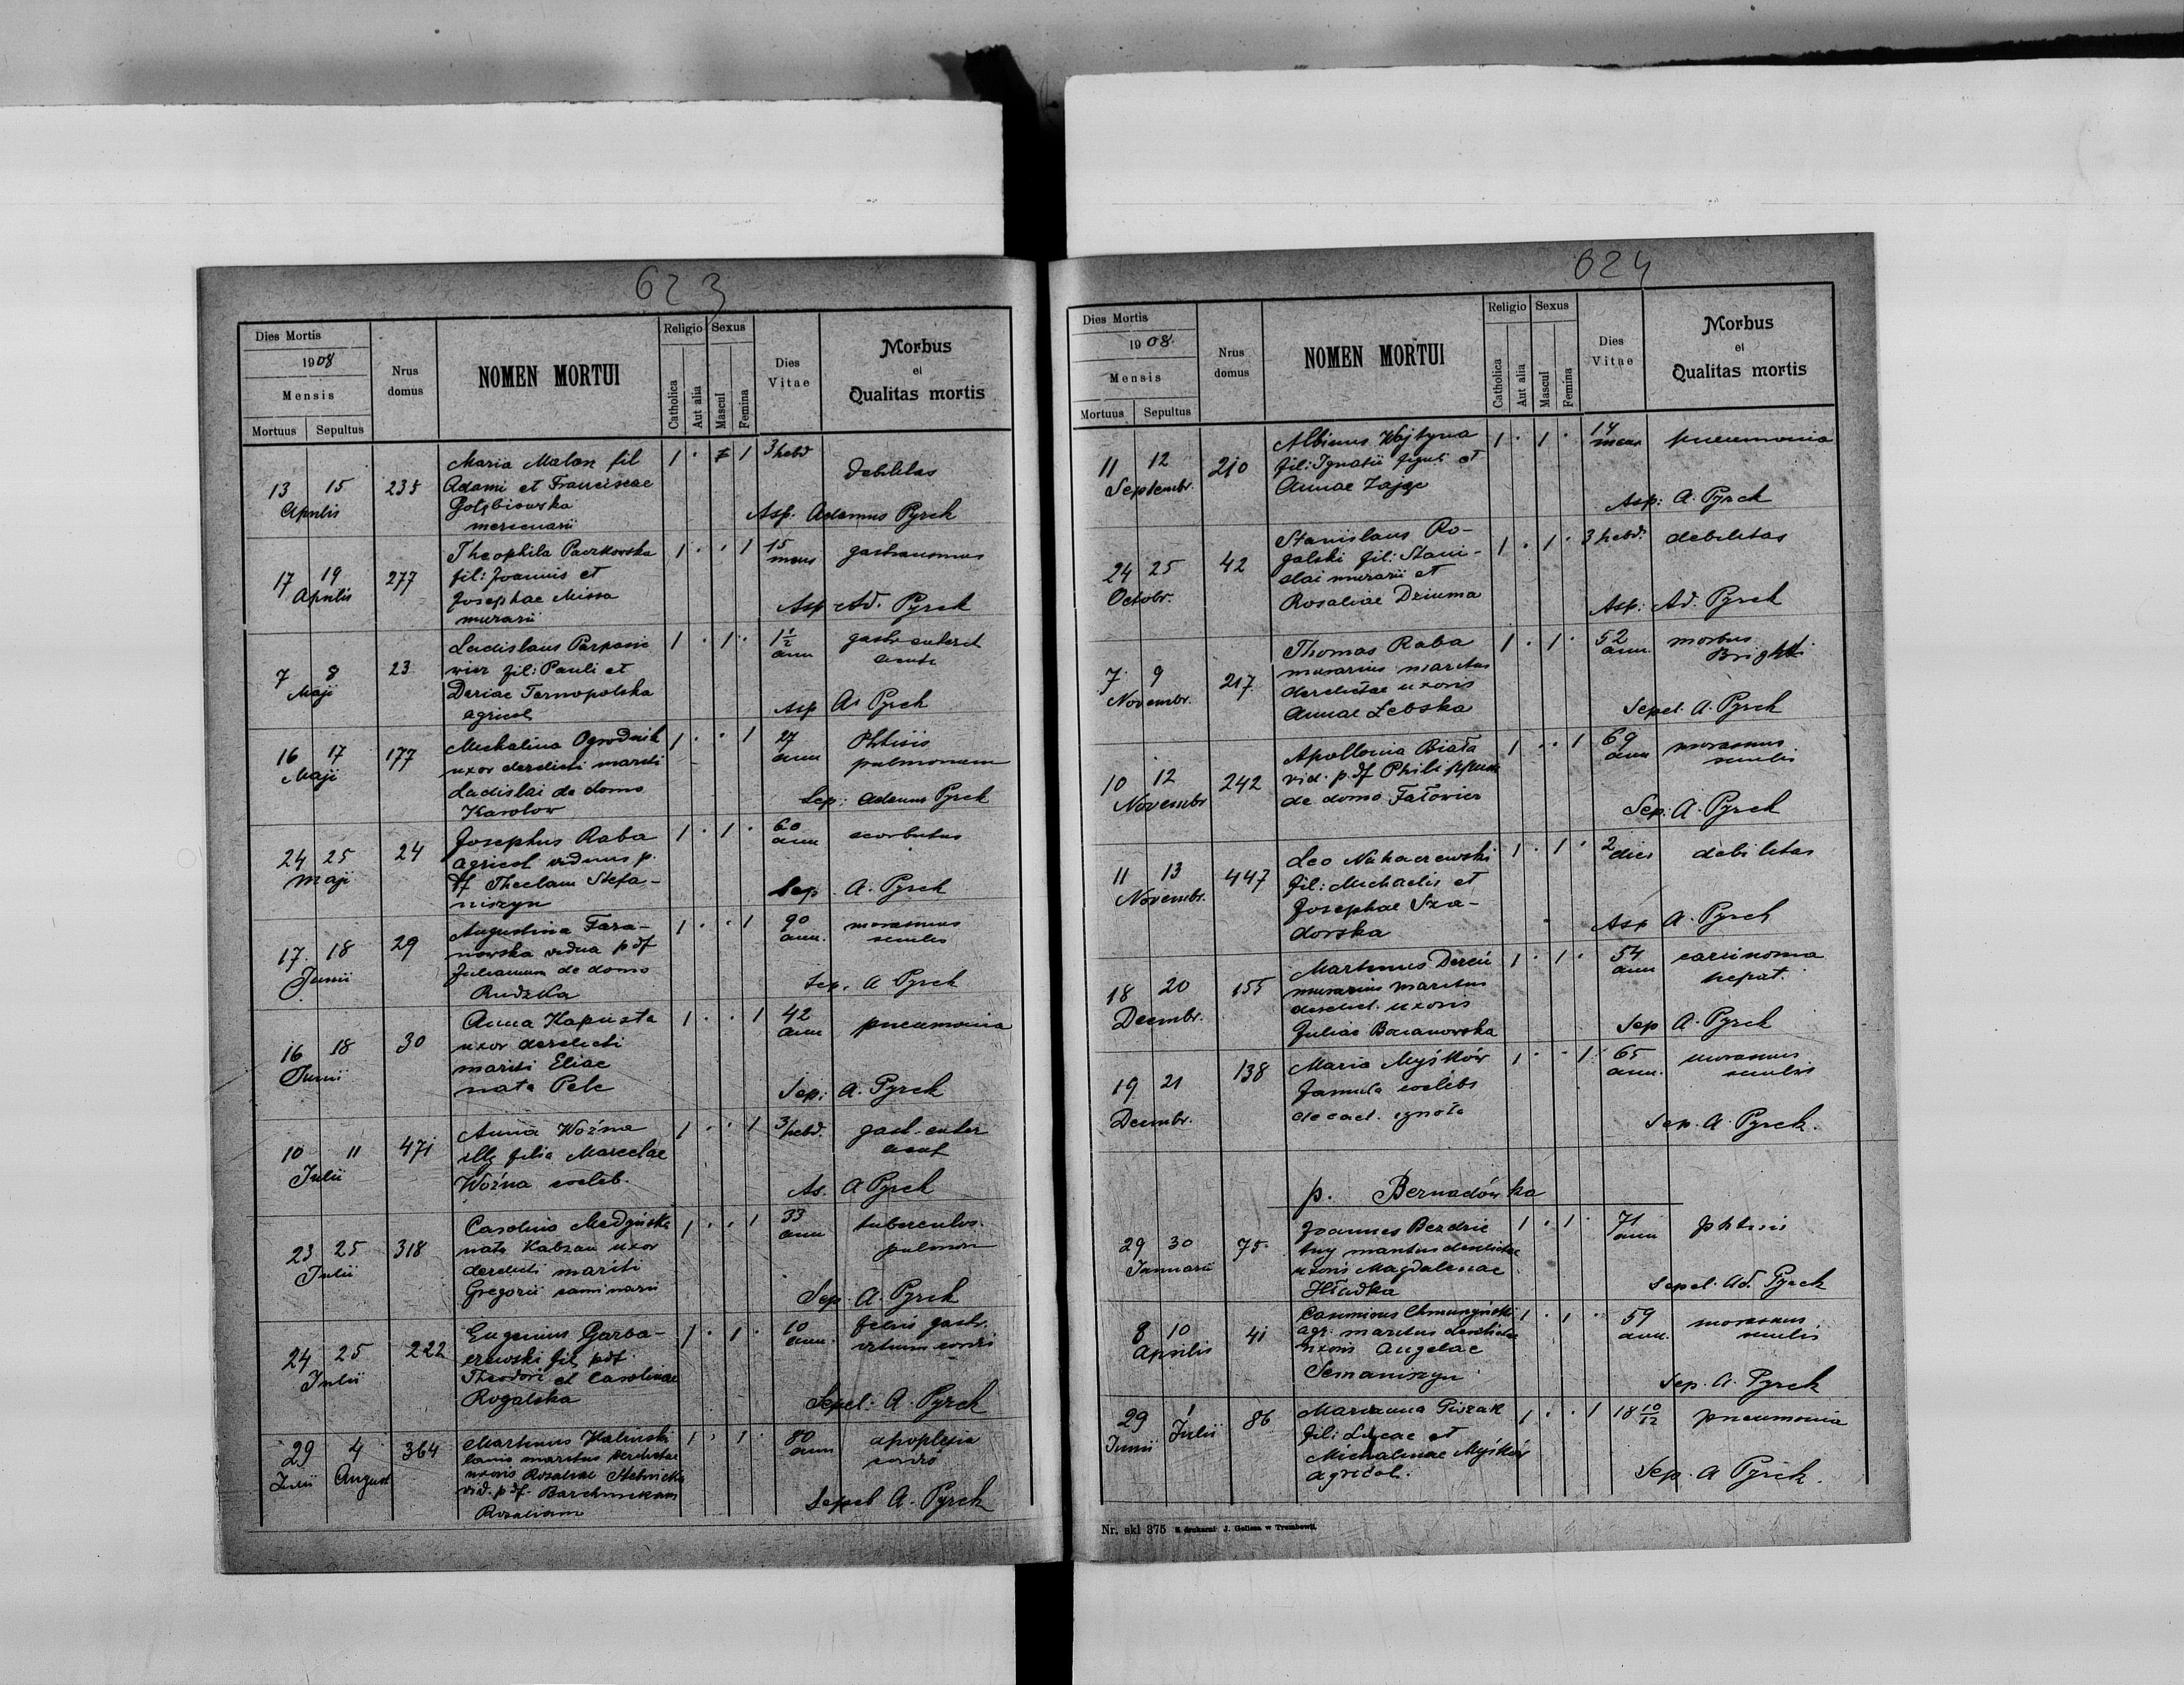 623
Dies Mortis
1908
Mensis
Mortuus Sepultus
Nrus domus
NOMEN MORTUI
Religio
Catholica
Aut alia
Sexus
Mascul
Femina
Dies Vitae
Morbus
et
Qualitas mortis
13 15 Aprilis 235
Maria Malon fil
Adami et Franciscae
Gołębiowska
mercenarii
1 . 1 3 hebd
debilitas
Asp. Adamus Pyrek
17 19 Aprilis 277
Theophila Paczkowska
fil: Joannis et
Josephae Missa
murarii
1 . . 1 15 mens
Asp Ad. Pyrek
7 8 Maji 23
Ladislaus
wicz fil: Pauli et
Dariae Tarnopolska
agricol
1 . 1 . 1 1/2 ann
gastr enterit
acuta
Asp A. Pyrek
16 17 Maji 177
Michalina Ogrodnik
uxor derelicti mariti
Ladislai de domo
Karolow
1 . . 1 27 ann
Phtisis
pulmonum
Sep: Adamus Pyrek
24 25 Maji 24
Josephus Raba
agricol viduus p.
df Theclam Stefa-
niszyn
1 . 1 . 60 ann
scorbutus
Sep. A. Pyrek
17 18 Junii 29
Augustina Tara-
nowska vidua pdf
Julianum de domo
Rudzka
1 . . 1 90 ann.
marasmus
senilis
Sep. A Pyrek
16 18 Junii 30
Anna Kapusta
uxor derelicti
mariti Eliae
nata Pelc
1 . . 1 42 ann
pneumonia
Sep: A. Pyrek
10 11 Julii 471
Anna Woźna
illg filia Marcelae
Woźna coeleb.
1 . . 1 3 hebd.
gast-enter
acut
As. A Pyrek
23 25 Julii 318
Carolina Medyńska
nata Kabzan uxor
derelicti mariti
Gregorii caminarii
1 . . 1 33 ann
tuberculos.
pulmon
Sep. A. Pyrek
24 25 Julii 222
Eugenius Garba-
czewski fil pdf
Theodori et Carolinae
Rogalska
1 . 1 . 10 ann.
febris gastr.
vitium cordis
Sepel: A. Pyrek
29 Julii 4 August 364
Martinus Kaliński
lanio maritus derelictae
uxoris Rosaliae Stelnicka
vid. pdf.
Rosaliam
1 . 1 80 ann
apoplexia
cordis
Sepel A. Pyrek
624
Dies Mortis
1908.
Mensis
Mortuus Sepultus
Nrus domus
NOMEN MORTUI
Religio
Catholica
Aut alia
Sexus
Mascul
Femina
Dies Vitae
Morbus
et
Qualitas mortis
11 12 Septembr. 210
Albinus Wojtyna
fil: Ignatii figuli et
Annae Zając
1 . 1 . 14 mens
pneumonia
Asp: A. Pyrek
24 25 Octobr. 42
Stanislaus Ro-
galski fil: Stani-
slai murarii et
Rosaliae Dziuma
1 . 1 . 3 hebd.
debilitas
Asp: Ad. Pyrek
7 9 Novembr. 217
Thomas Raba
murarius maritus
derelictae uxoris
Annae Łebska
1 . 1 . 52 ann.
morbus
Brighti
Sepel. A. Pyrek
10 12 Novembr 242
Apollonia Biała
vid. pdf Philippum
de domo Fałowicz
1 . . 1 69 ann
marasmus
senilis
Sep. A. Pyrek
11 13 Novembr. 447
Leo Nahaczewski
fil: Michaelis et
Josephae Sza-
dorska
1 . 1 . 2 dies
debilitas
Asp A. Pyrek
18 20 Decembr. 155
Martinus Dereń
murarius maritus
derelict. uxoris
Juliae Bocianowska
1 . 1 . 54 ann
carcinoma
hepat.
Sep A. Pyrek
19 21 Decembr. 138
Maria Myśków
famula coelebs
de cael. ignota
1 . . 1 65 ann.
marasmus
senilis
Sep. A. Pyrek.
p. Bernadówka
29 30 Januarii 75
Joannes Bezdzie
tny maritus derelictae
uxoris Magdalenae
Hładka
1 . 1 . 71 ann
phtisis
Sepel. Ad. Pyrek
8 10 Aprilis 41
Casimirus Chmurzyński
agr. maritus derelictae
uxoris Angelae
Semaniszyn
1 . 1 . 59 ann.
marasmus
senilis
Sep. A. Pyrek
29 Junii 1 Julii 86
Marianna Pivzak
fil: Lucae et
Michalinae Myśków
agricol.
1 . . 1 18 10/12
pneumonia
Sep. A Pyrek.
Nr. skł 375 Z drukarni J. Gellesa w Trembowli.